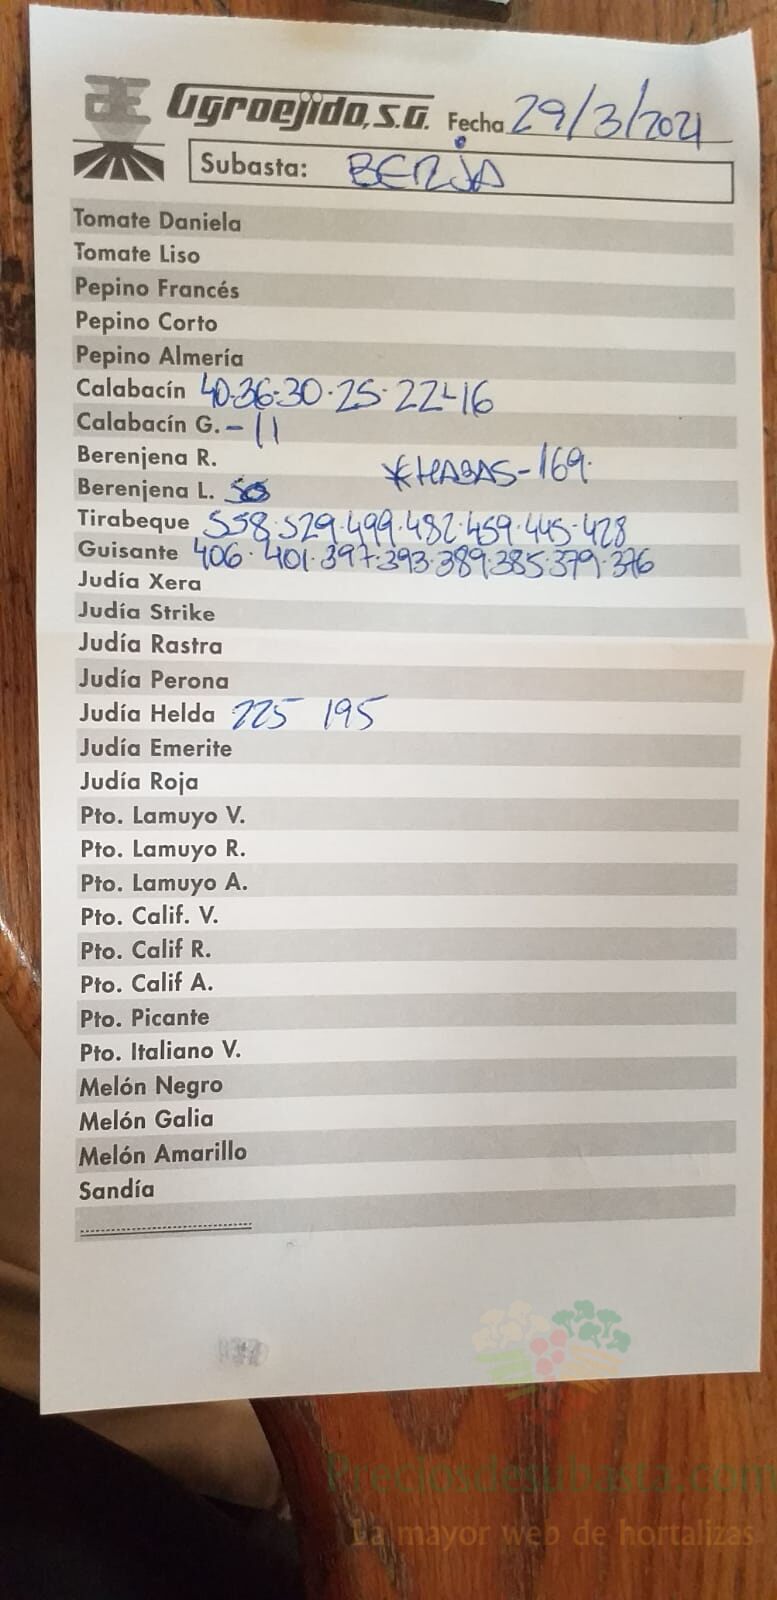 Agroejido, S.A. Fecha 29/3/2021
Subasta: BERJA
Tomate Daniela
Tomate Liso
Pepino Francés
Pepino Corto
Pepino Almería
Calabacín 40·36·30·25·22-16
Calabacín G. - 11
Berenjena R.
*HABAS-169·
Berenjena L.
Tirabeque 558·529·499·482·459·445·428
Guisante 406·401·397·393·389·385·379·376
Judía Xera
Judía Strike
Judía Rastra
Judía Perona
Judía Helda 225 195
Judía Emerite
Judía Roja
Pto. Lamuyo V.
Pto. Lamuyo R.
Pto. Lamuyo A.
Pto. Calif. V.
Pto. Calif R.
Pto. Calif A.
Pto. Picante
Pto. Italiano V.
Melón Negro
Melón Galia
Melón Amarillo
Sandía
Preciosdesubasta.com
La mayor web de hortalizas